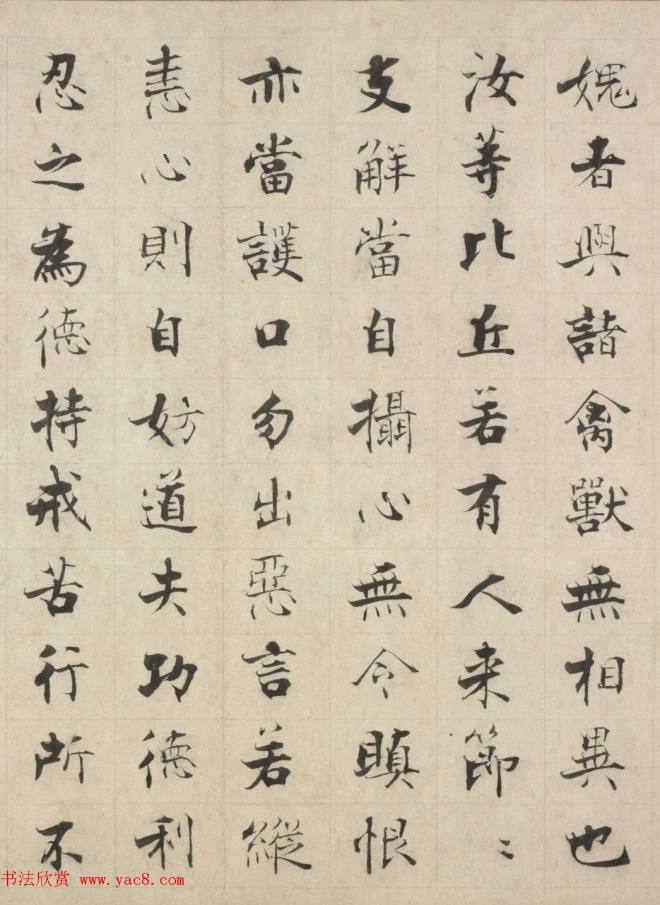 媿者與諸禽獸無相異也
汝等比丘若有人来節〻
支解當自攝心無令瞋恨
亦當護口勿出惡言若縱
恚心則自妨道失功德利
忍之為德持戒苦行所不
书法欣赏 www.yac8.com